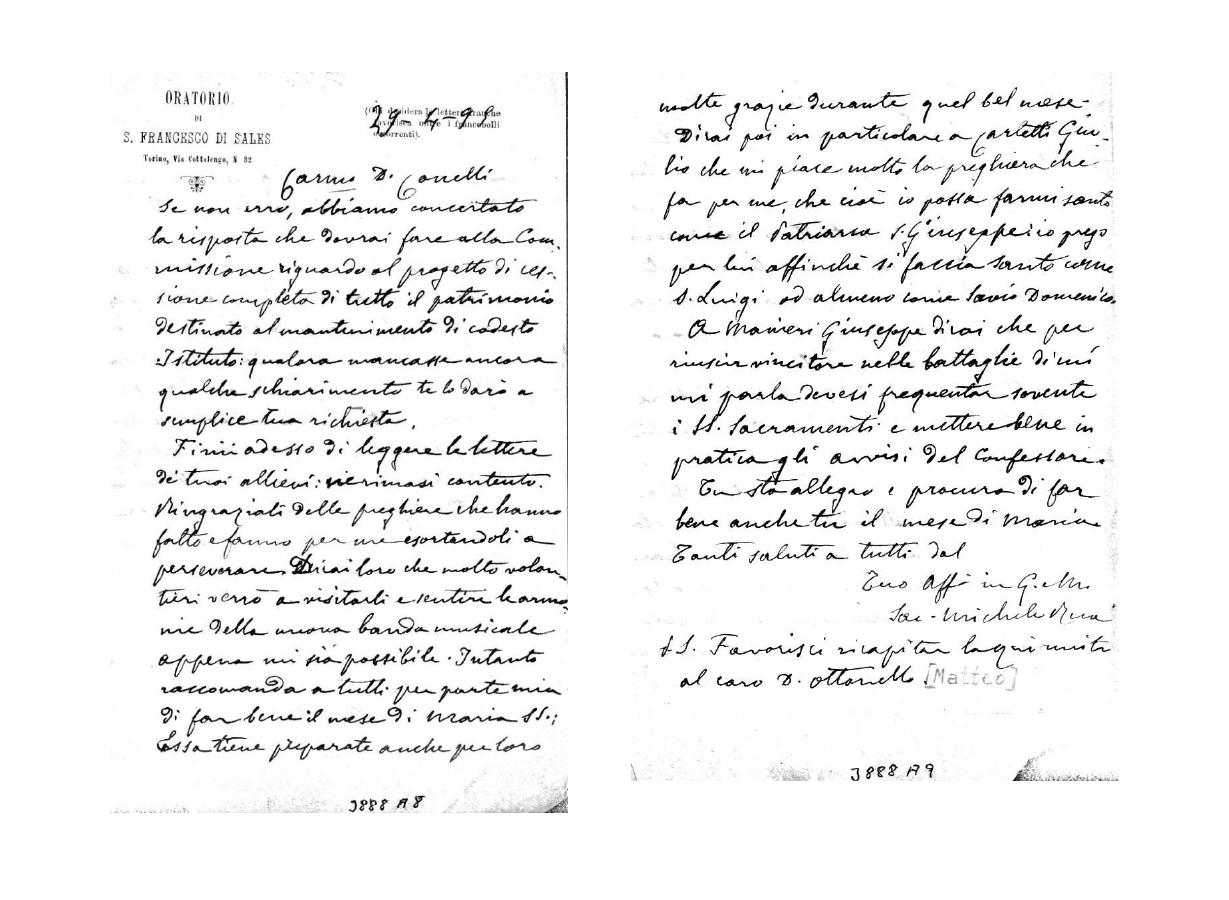 ORATORIO
DI
S. FRANCESCO DI SALES
Torino, Via Cottolengo, N 32
(Chi desidera le lettere franche
favorisca unire i francobolli
occorrenti).
29-4-95
Carmo D. Conelli
Se non erro, abbiamo concertato
la risposta che dovrai fare alla Com-
missione riguardo al progetto di ces-
sione completa di tutto il patrimonio
destinato al mantenimento di codesto
Istituto: qualora mancasse ancora
qualche schiarimento te lo darò a
semplice tua richiesta.
Finii adesso di leggere le lettere
de' tuoi allievi: ne rimasi contento.
Ringraziali delle preghiere che hanno
fatto e fanno per me esortandoli a
perseverare. Dirai loro che molto volon-
tieri verrò a visitarli e sentire le armo-
nie della nuova banda musicale
appena mi sia possibile. Intanto
raccomanda a tutti per parte mia
di far bene il mese di Maria SS.;
Essa tiene preparate anche per loro
J888 A8
molte grazie durante quel bel mese.
Dirai poi in particolare a Carletti Giu-
lio che mi piace molto la preghiera che
fa per me, che cioè io possa farmi santo
come il Patriarca S. Giuseppe: io prego
per lui affinchè si faccia santo come
S. Luigi od almeno come Savio Domenico.
A Manieri Giuseppe dirai che per
riuscir vincitore nelle battaglie di cui
mi parla devesi frequentar sovente
i SS. Sacramenti e mettere bene in
pratica gli avvisi del Confessore.
Tu sta allegro e procura di far
bene anche tu il mese di Maria.
Tanti saluti a tutti dal
Tuo Aff in G. e M.
Sac. Michele Rua
P.S. Favorisci ricapitar la qui unita
al caro D. Ottonello [Matteo]
J888 A9